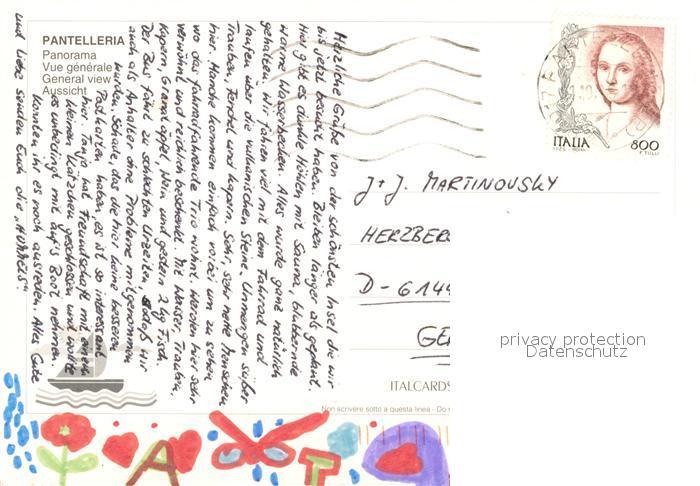 PANTELLERIA
Panorama
Vue générale
General view
Aussicht
Herzliche Grüße von der schönsten Insel die wir
bis jetzt besucht haben. Bleiben länger als geplant.
Hier gibt es dunkle Höhlen mit Sauna, blubbernde
warme Wasserbecken. Alles wurde ganz natürlich
gehalten. Wir fahren viel mit dem Fahrrad und
laufen über die vulkanischen Steine. Unmengen süßer
Trauben, Fenchel und Kapern. Sehr, sehr nette Menschen
hier. Manche kommen einfach vorbei um zu sehen
wo das fahrradfahrende Trio wohnt. Werden hier sehr
verwöhnt und reichlich beschenkt. Mit Wasser, Trauben,
Kapern, Granatäpfel, Wein und gestern 2 kg Fisch.
Der Bus fährt zu schlechten Urzeiten, sodaß wir
auch als Anhalter ohne Probleme mitgenommen
wurden. Schade, das die hier keine besseren
Postkarten haben, es ist so interessant
hier. Tanja hat Freundschaft mit einem
kleinen Kätzchen geschlossen und wollte
es unbedingt mit auf's Boot nehmen.
Konnten ihr es noch ausreden. Alles Gute
und liebe senden Euch die
J + J. MARTINOVSKY
HERZBERG
D - 6144
GE
ITALIA
800
ITALCARDS
Non scrivere sotto a questa linea - Do
privacy protection
Datenschutz
A T